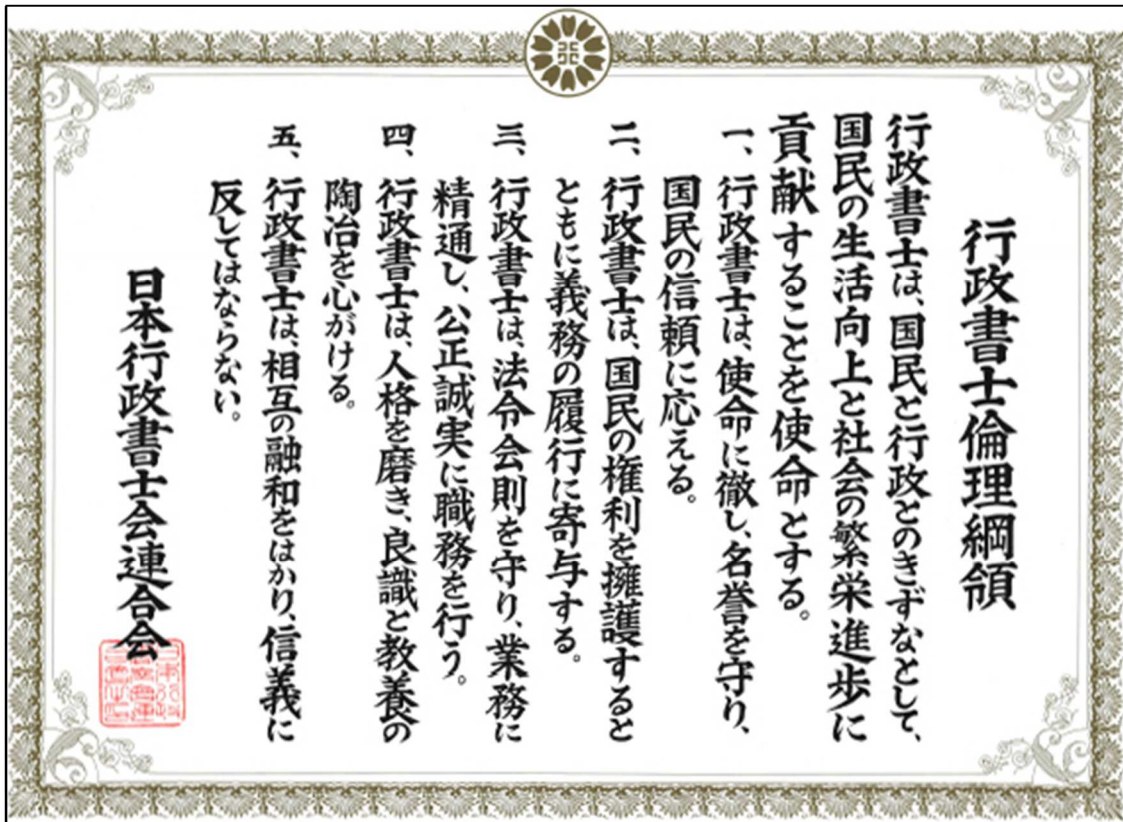 行政書士倫理綱領
行政書士は、国民と行政とのきずなとして、
国民の生活向上と社会の繁栄進歩に
貢献することを使命とする。
一、行政書士は、使命に徹し、名誉を守り、
国民の信頼に応える。
二、行政書士は、国民の権利を擁護すると
ともに義務の履行に寄与する。
三、行政書士は、法令会則を守り、業務に
精通し、公正誠実に職務を行う。
四、行政書士は、人格を磨き、良識と教養の
陶冶を心がける。
五、行政書士は、相互の融和をはかり、信義に
反してはならない。
日本行政書士会連合会